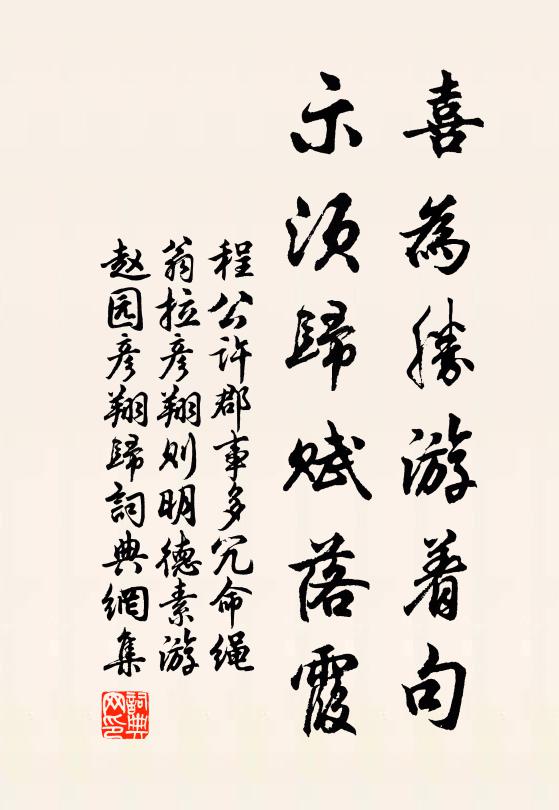 喜為勝游着句
示須歸賦落霞
程公許郡事多冗命绳
翁拉彦翔则明德素游
赵园彦翔歸詞典網集
詞典
网印